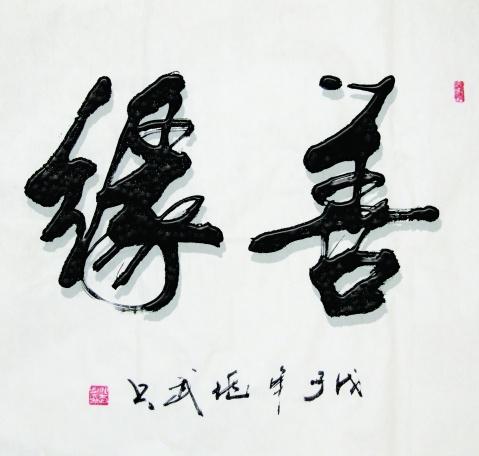 善缘
戊子年 武